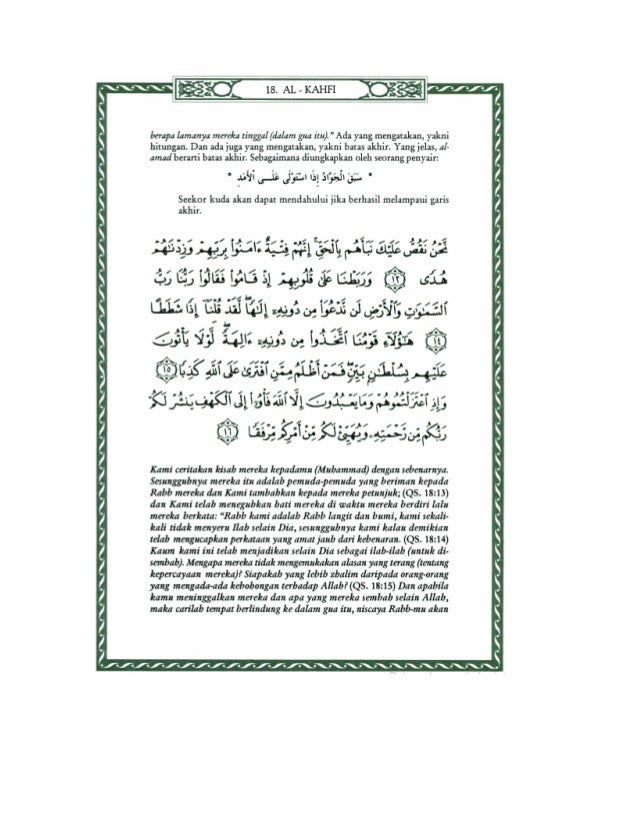 18. AL - KAHFI
berapa lamanya mereka tinggal (dalam gua itu)." Ada yang mengatakan, yakni
hitungan. Dan ada juga yang mengatakan, yakni batas akhir. Yang jelas, al-
amad berarti batas akhir. Sebagaimana diungkapkan oleh seorang penyair:
* سَبَقَ الْجَوَادُ إِذَا اسْتَوْلَى عَلَى الْأَمَدِ *
Seekor kuda akan dapat mendahului jika berhasil melampaui garis
akhir.
نَّحْنُ نَقُصُّ عَلَيْكَ نَبَأَهُم بِالْحَقِّ ۚ إِنَّهُمْ فِتْيَةٌ ءَامَنُوا۟ بِرَبِّهِمْ وَزِدْنَٰهُمْ
هُدًى ١٣ وَرَبَطْنَا عَلَىٰ قُلُوبِهِمْ إِذْ قَامُوا۟ فَقَالُوا۟ رَبُّنَا رَبُّ
السَّمَٰوَٰتِ وَالْأَرْضِ لَن نَّدْعُوَا۟ مِن دُونِهِۦٓ إِلَٰهًا ۖ لَّقَدْ قُلْنَآ إِذًا شَطَطًا
١٤ هَٰٓؤُلَآءِ قَوْمُنَا اتَّخَذُوا۟ مِن دُونِهِۦٓ ءَالِهَةً ۖ لَّوْلَا يَأْتُونَ
عَلَيْهِم بِسُلْطَٰنٍۭ بَيِّنٍ ۖ فَمَنْ أَظْلَمُ مِمَّنِ افْتَرَىٰ عَلَى اللَّهِ كَذِبًا ١٥
وَإِذِ اعْتَزَلْتُمُوهُمْ وَمَا يَعْبُدُونَ إِلَّا اللَّهَ فَأْوُۥٓا۟ إِلَى الْكَهْفِ يَنشُرْ لَكُمْ
رَبُّكُم مِّن رَّحْمَتِهِۦ وَيُهَيِّئْ لَكُم مِّنْ أَمْرِكُم مِّرْفَقًا ١٦
Kami ceritakan kisah mereka kepadamu (Muhammad) dengan sebenarnya.
Sesungguhnya mereka itu adalah pemuda-pemuda yang beriman kepada
Rabb mereka dan Kami tambahkan kepada mereka petunjuk; (QS. 18:13)
dan Kami telah meneguhkan hati mereka di waktu mereka berdiri lalu
mereka berkata: "Rabb kami adalah Rabb langit dan bumi, kami sekali-
kali tidak menyeru Ilah selain Dia, sesungguhnya kami kalau demikian
telah mengucapkan perkataan yang amat jauh dari kebenaran. (QS. 18:14)
Kaum kami ini telah menjadikan selain Dia sebagai ilah-ilah (untuk di-
sembah). Mengapa mereka tidak mengemukakan alasan yang terang (tentang
kepercayaan mereka)? Siapakah yang lebih zhalim daripada orang-orang
yang mengada-ada kebohongan terhadap Allah? (QS. 18:15) Dan apabila
kamu meninggalkan mereka dan apa yang mereka sembah selain Allah,
maka carilah tempat berlindung ke dalam gua itu, niscaya Rabb-mu akan